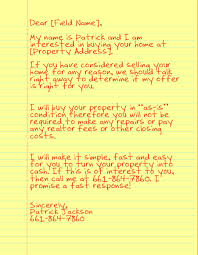 Dear [Field Name],
My name is Patrick and I am
interested in buying your home at
[Property Address].
If you have considered selling your
home for any reason, we should talk
right away to determine if my offer
is right for you.
I will buy your property in "as-is"
condition therefore you will not be
required to make any repairs or pay
any realtor fees or other closing
costs.
I will make it simple, fast and easy
for you to turn your property into
cash! If this is of interest to you,
then call me at 661-864-7860. I
promise a fast response!
Sincerely,
Patrick Jackson
661-864-7860